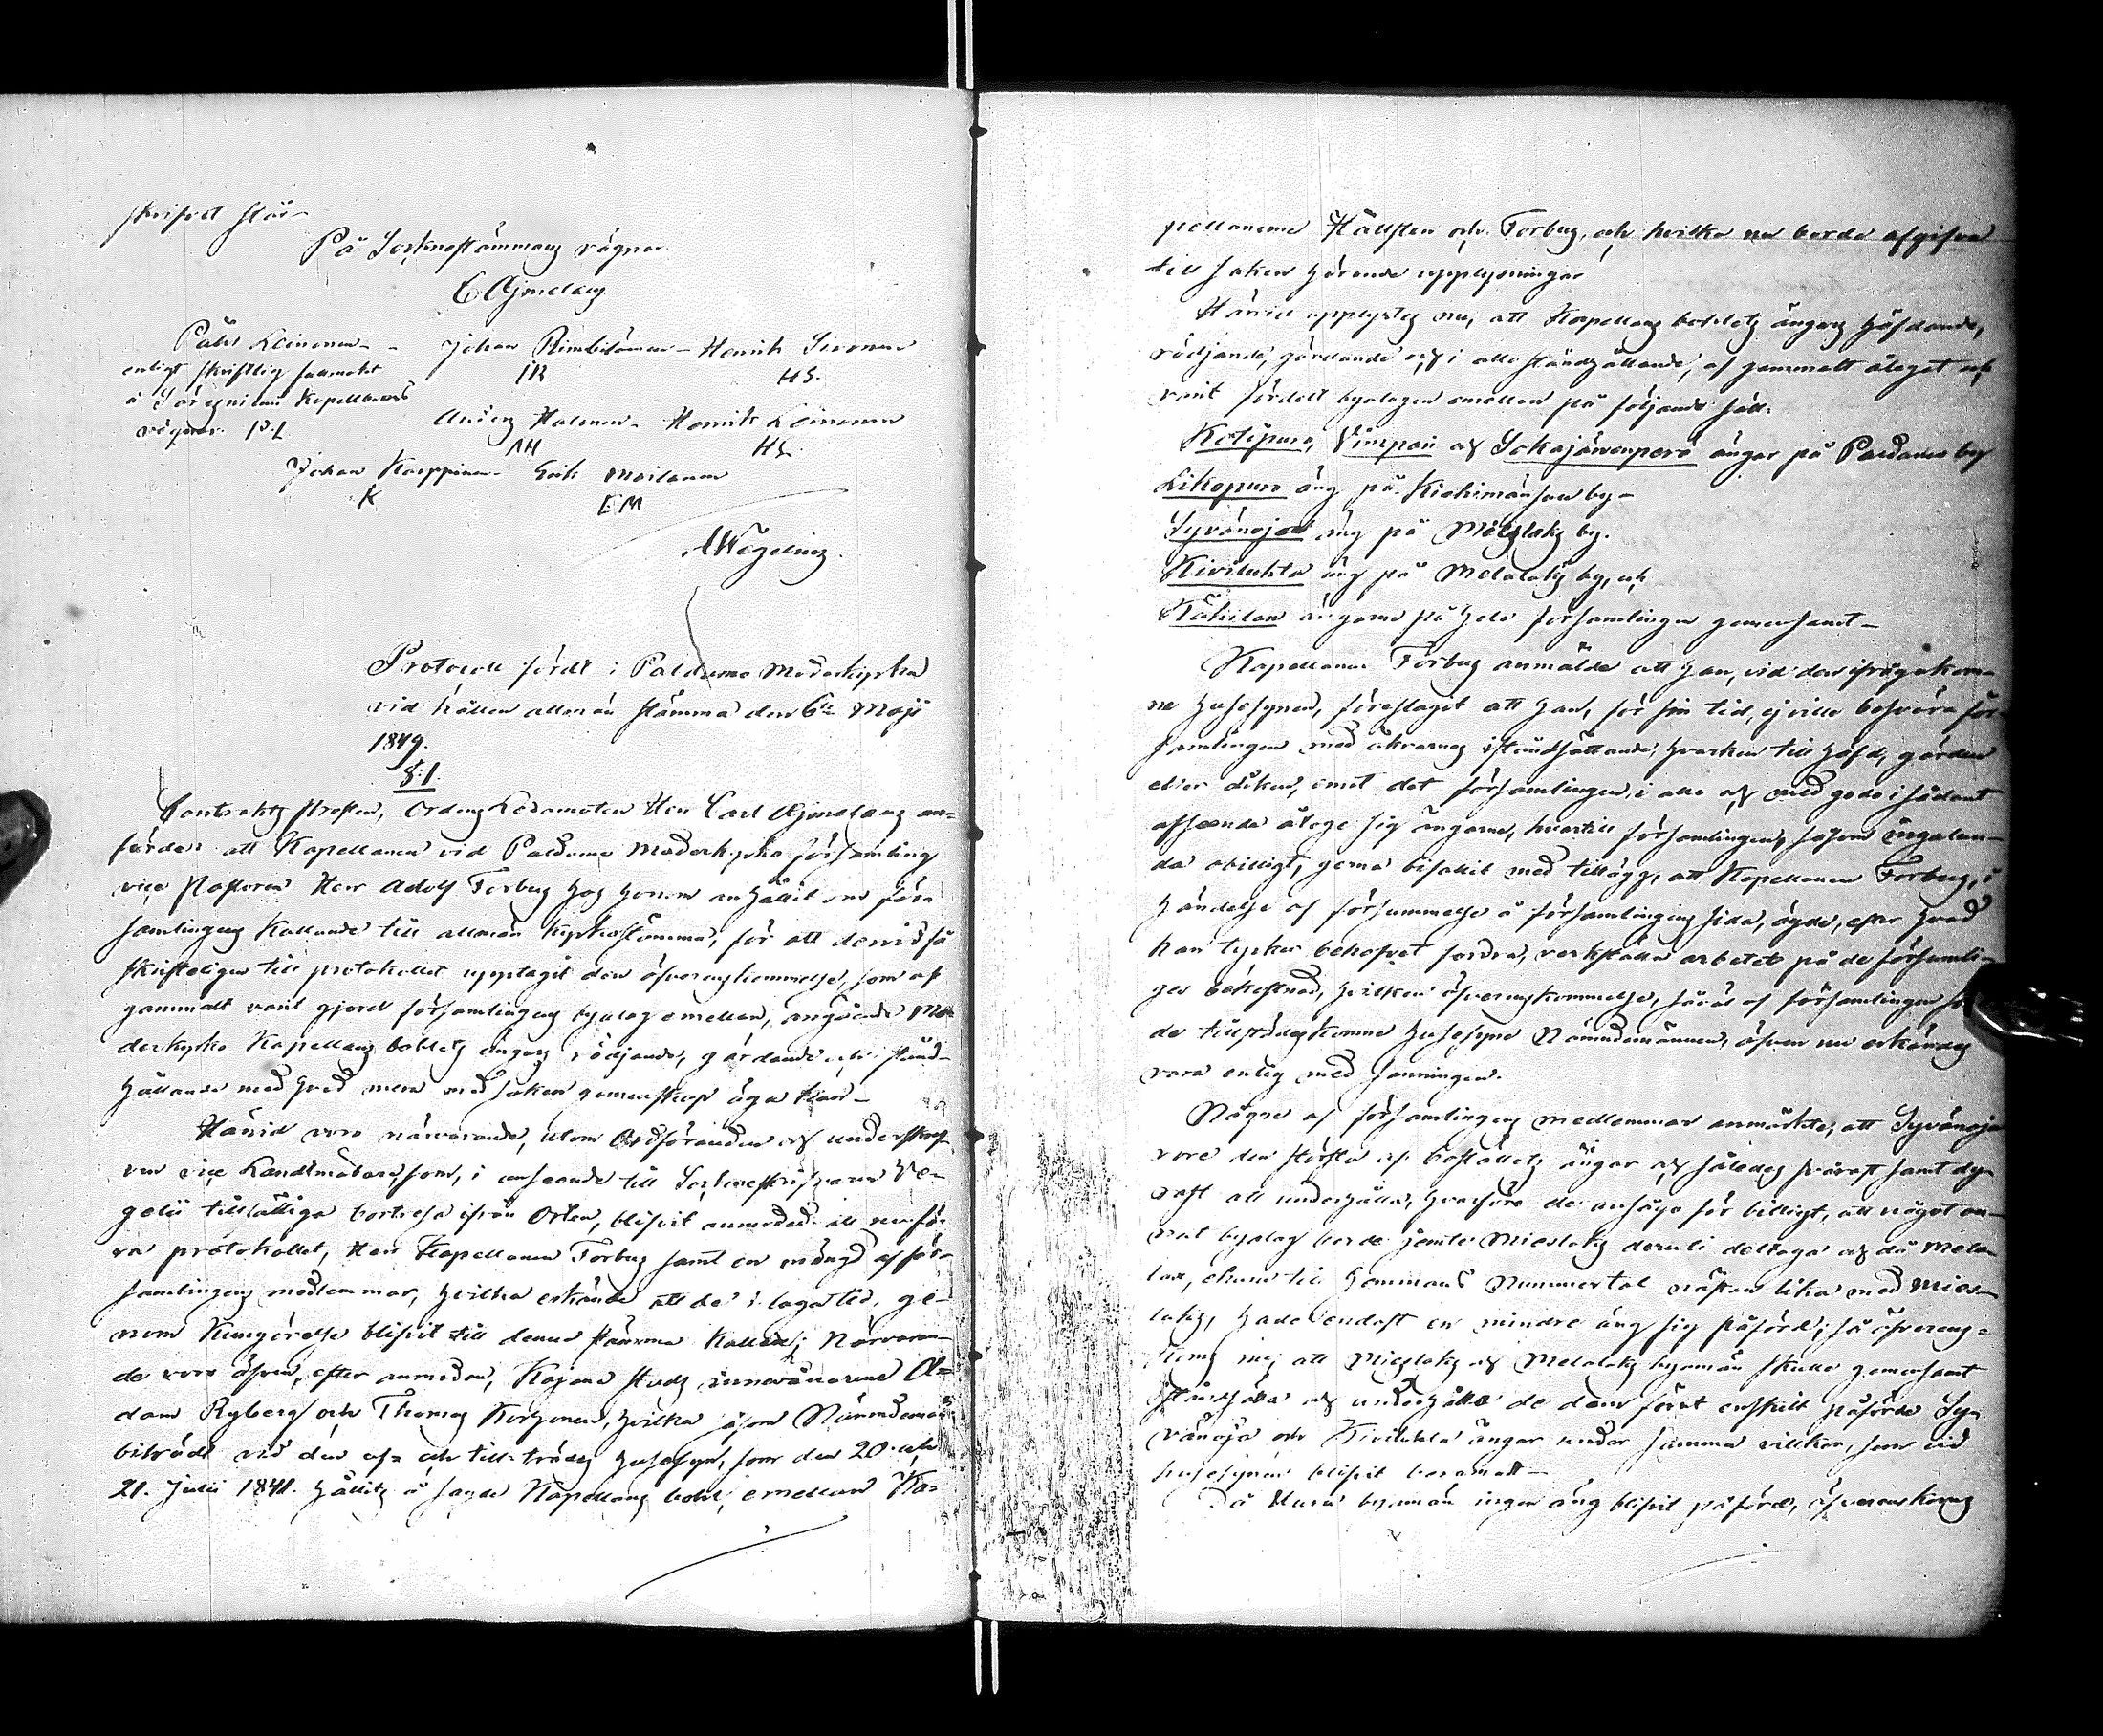 skrifvit står
På Socknestämmans vägnar
C Ajmelæus
Påhl Leinonen - Johan Rimbiläinen - Henrik Sironen
enligt skriftlig fullmakt IR HS.
å Säresniemi Kapellboers
vägnar. P.L Anders Halonen - Henrik Leinonen
AH HL.
Johan Karppinen - Erik Moilanen
K EM
A Wegelius.
Protocoll fördt i Paldamo Moderkyrka
vid hållen allmän stämma den 6te Maji
1849.
§:1.
Contrakts Prosten, Ordens Ledamoten Herr Carl Ajmelæus an-
förde: att Kapellanen vid Paldamo Moderkyrko församling
vice Pastoren Herr Adolf Forbus hos honom anhållit om för-
samlingens kallande till allmän kyrkostämma, för att dervid få
skrifteligen till protokollet upptagit den öfverenskommelse, som af
gammalt varit gjord församlingens byalag emellan, angående Mo-
derkyrko Kapellans bohlets ängars rödjande, gärdande och stånd-
hållande med hvad mera med saken gemenskap äga kan -
Härvid voro närvarande, utom Ordföranden och underskref-
ven vice Landtmätare, som, i anseende till Sockneskrifvaren We-
gelii tillfälliga bortresa ifrån Orten, blifvit anmodad att nu fö-
ra protokollet, Herr Kapellanen Forbus samt en mängd af för-
samlingens medlemmar, hvilka erkände att de i laga tid, ge-
nom kungörelse blifvit till denna stämma kallade; Närvaran-
de voro äfven, efter anmodan, Kajana Stads innevånarene A-
dam Ryberg och Thomas Korhonen, hvilka såsom Nämndemän
biträdt vid den af- och tillträdes husesyn, som den 20 och
21. Julii 1841. hållits å sagde Kapellans bohl, emellan Ka-
pellanerne Hällsten och Forbus, och hvilka nu borde afgifva
till saken hörande upplysningar
Härvid upplystes nu, att Kapellans bohlets ängars häfdande,
rödjande, gärdande och i alla ståndhållande, af gammalt ålegat och
varit fördelt byalagen emellan på följande sätt.
Kotipuro, och Jokajärvenperä ängar på Paldamo by
Likopuro äng på Kiehimänsuu by -
Syvänoja äng på Mieslaks by.
Kivilahta äng på Melalaks by, och
ängarne på hela församlingen gemensamt -
Kapellanen Forbus anmälde att han, vid den ifrågakom-
ne husesynen, föreslagit att han, för sin tid, ej ville besvära för-
samlingen med åkrarnes iståndsättande, hvarken till häfd, gärden
eller diken, emot det församlingen, i allo och med godo i sådant
afseende åtoge sig ängarne, hvartill församlingen, såsom ingalun-
da obilligt, gerna bifallit med tillägg, att Kapellanen Forbus, i
händelse af försummelse å församlingens sida, ägde, efter hvad
han tycker behofvet fordra, verkställa arbetet på de försumli-
ges bekostnad, hvilken öfverenskommelse, såväl af församlingen som
de tillstädeskomne husesyne Nämndemännen, äfven nu erkändes
vara enlig med sanningen.
Några af församlingens medlemmar anmärkte, att Syvänoja
vore den största af boställets ängar och således svårast samt dy-
rast att underhålla, hvarföre de ansågo för billigt, att något an-
nat byalag borde jemte Mieslaks deruti deltaga och då Mela-
lax, ehuru till hemmans nummertal nästan lika med Mies-
laks, hade endast en mindre äng sig påförd; så öfverens-
koms nu, att Mieslaks och Melalaks byamän skulle gemensamt
iståndsätta och underhålla de dem förut enskilt påförda Sy-
vänoja och Kivilahta ängar under samma villkor, som vid
husesynen blifvit beramadt -
Då byamän ingen äng blifvit påförd, öfverenskoms